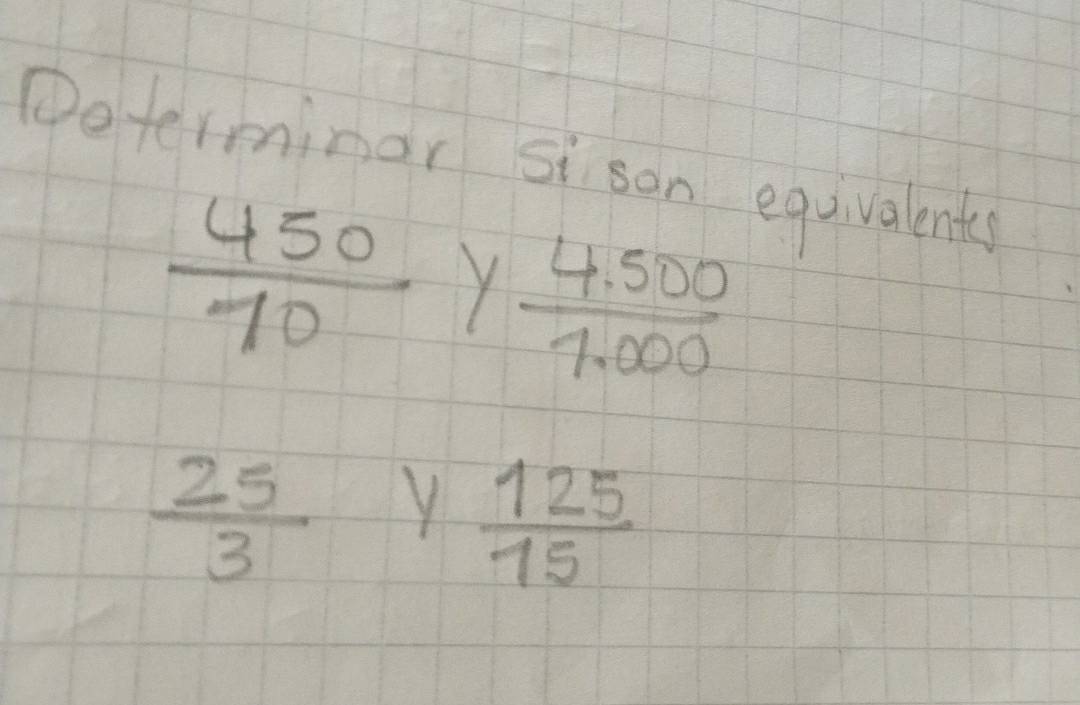 Determinar si son equivalentes
450/10 y 4.500/1.000
25/3 y 125/15